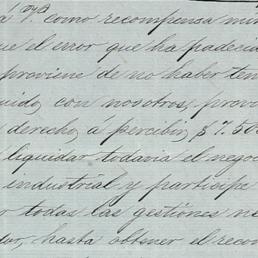 y como recompensa
ue el error que ha padecid
proviene de no haber ten
uido, con nosotros, provi
derecho, á percibir, $7.50
liquidar todavia el nego
industrial y participe
todas las gestiones ne
hasta obtener el recon